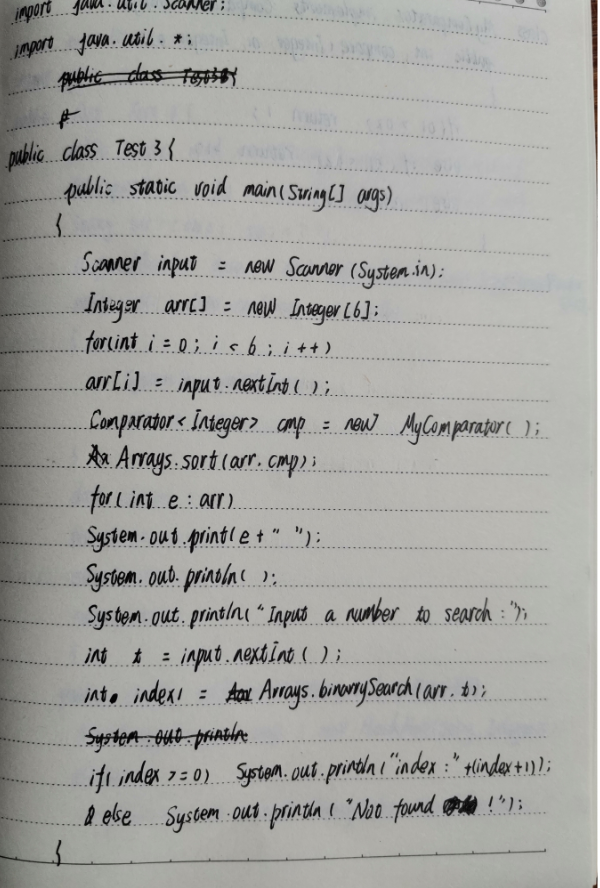 import java.util.Scanner;
import java.util.*;
public class Test3{
public class Test3{
public static void main(String[] args)
{
Scanner input = new Scanner(System.in);
Integer arr[] = new Integer[6];
for(int i=0; i<6; i++)
arr[i] = input.nextInt();
Comparator<Integer> cmp = new MyComparator();
Arrays.sort(arr.cmp);
for(int e:arr)
System.out.print(e+" ");
System.out.println();
System.out.println("Input a number to search:");
int t = input.nextInt();
int index1 = Arrays.binarySearch(arr.t);
System.out.println
if(index>=0) System.out.println("index:"+(index+1));
else System.out.println("Not found !");
}